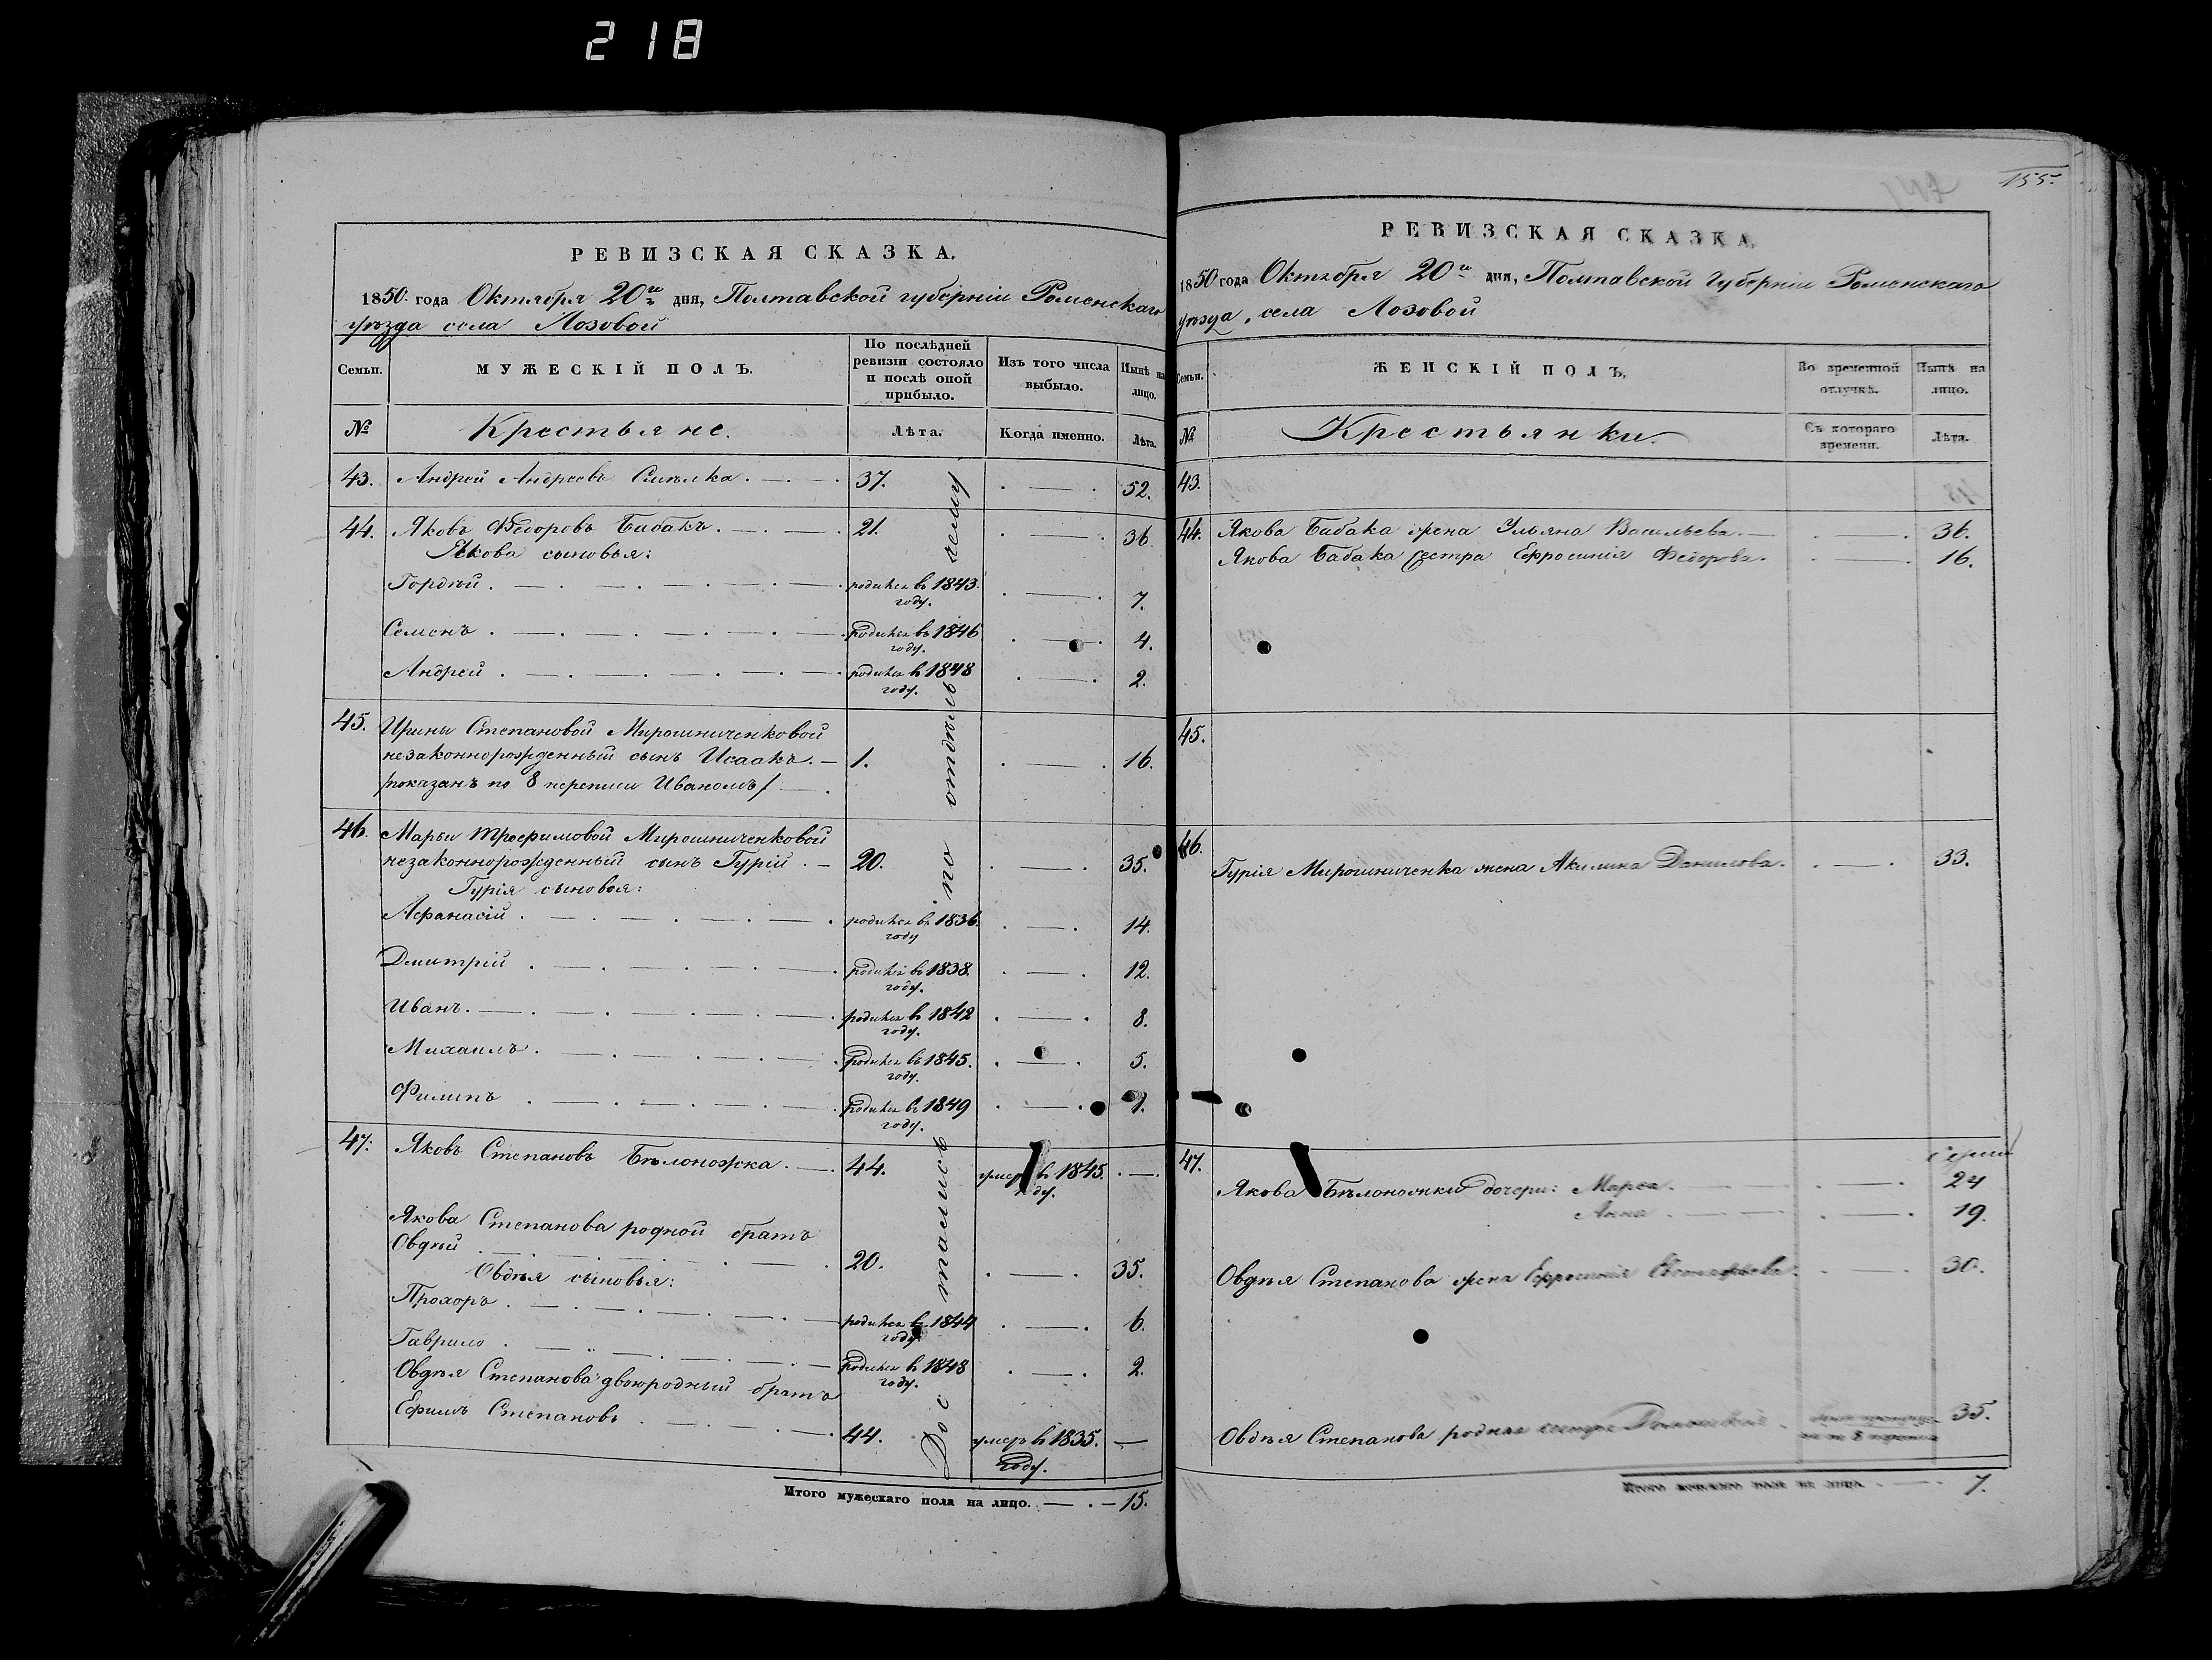 218
155.
РЕВИЗСКАЯ СКАЗКА.
1850. года Октября 20го дня, Полтавской губерніи Роменскаго
уѣзда села Лозовой
Семьи.
МУЖЕСКІЙ ПОЛЪ.
По послѣдней ревизіи состояло и послѣ оной прибыло.
Изъ того числа выбыло.
Нынѣ на лицо.
№
Крестьяне.
Лѣта.
Когда именно.
Лѣта.
43. Андрей Андреевъ Смѣлка. 37. 52.
44. Яковъ Ѳедоровъ Бабакъ. 21. 36
Якова сыновья:
Гордѣй. родился въ 1843. году. 7.
Семенъ. родился въ 1846 году. 4.
Андрей. родился в 1848 году. 2.
45. Ирины Степановой Мирошниченковой
незаконнорожденный сынъ Исаакъ. 1. 16.
показанъ по 8 переписи Иваномъ/
46. Марьи Трофимовой Мирошниченковой
незаконнорожденный сынъ Гурій. 20. 35.
Гурія сыновья:
Афанасій. родился въ 1836. году 14.
Дмитрій. родился въ 1838. году. 12.
Иванъ. родился в 1842 году. 8.
Михаилъ. родился въ 1845. году. 5.
Филипъ родился въ 1849 году. 1.
47. Яковъ Степановъ Бѣлоножка. 44. умер в 1845. году.
Якова Степанова родной братъ
Овдѣй 20. 35.
Овдѣя сыновья:
Прохоръ. родился в 1844 году. 6.
Гаврило. родился в 1848 году. 2.
Овдѣя Степанова двоюродный братъ
Ефимъ Степановъ 44. умеръ в 1835. году.
Достались по отдѣльному
Итого мужескаго пола на лицо. 15.
РЕВИЗСКАЯ СКАЗКА.
1850 года Октября 20го дня, Полтавской губерніи Роменскаго
уѣзда, села Лозовой
Семьи.
ЖЕНСКІЙ ПОЛЪ.
Во временной отлучкѣ.
Нынѣ на лицо.
№
Крестьянки.
Съ котораго времени.
Лѣта.
43.
44. Якова Бабака жена Ульяна Васильева. 36.
Якова Бабака сестра Ефросинія Ѳедорова. 16.
45.
46.
Гурія Мирошниченка жена Акилина Данилова. 33.
47.
Якова Бѣлоножки дочери: Марѳа. 24
Анна. 19.
Овдѣя Степанова жена Ефросинія 30.
Овдѣя Степанова родная сестра 35.
Итого женскаго пола на лицо 7.